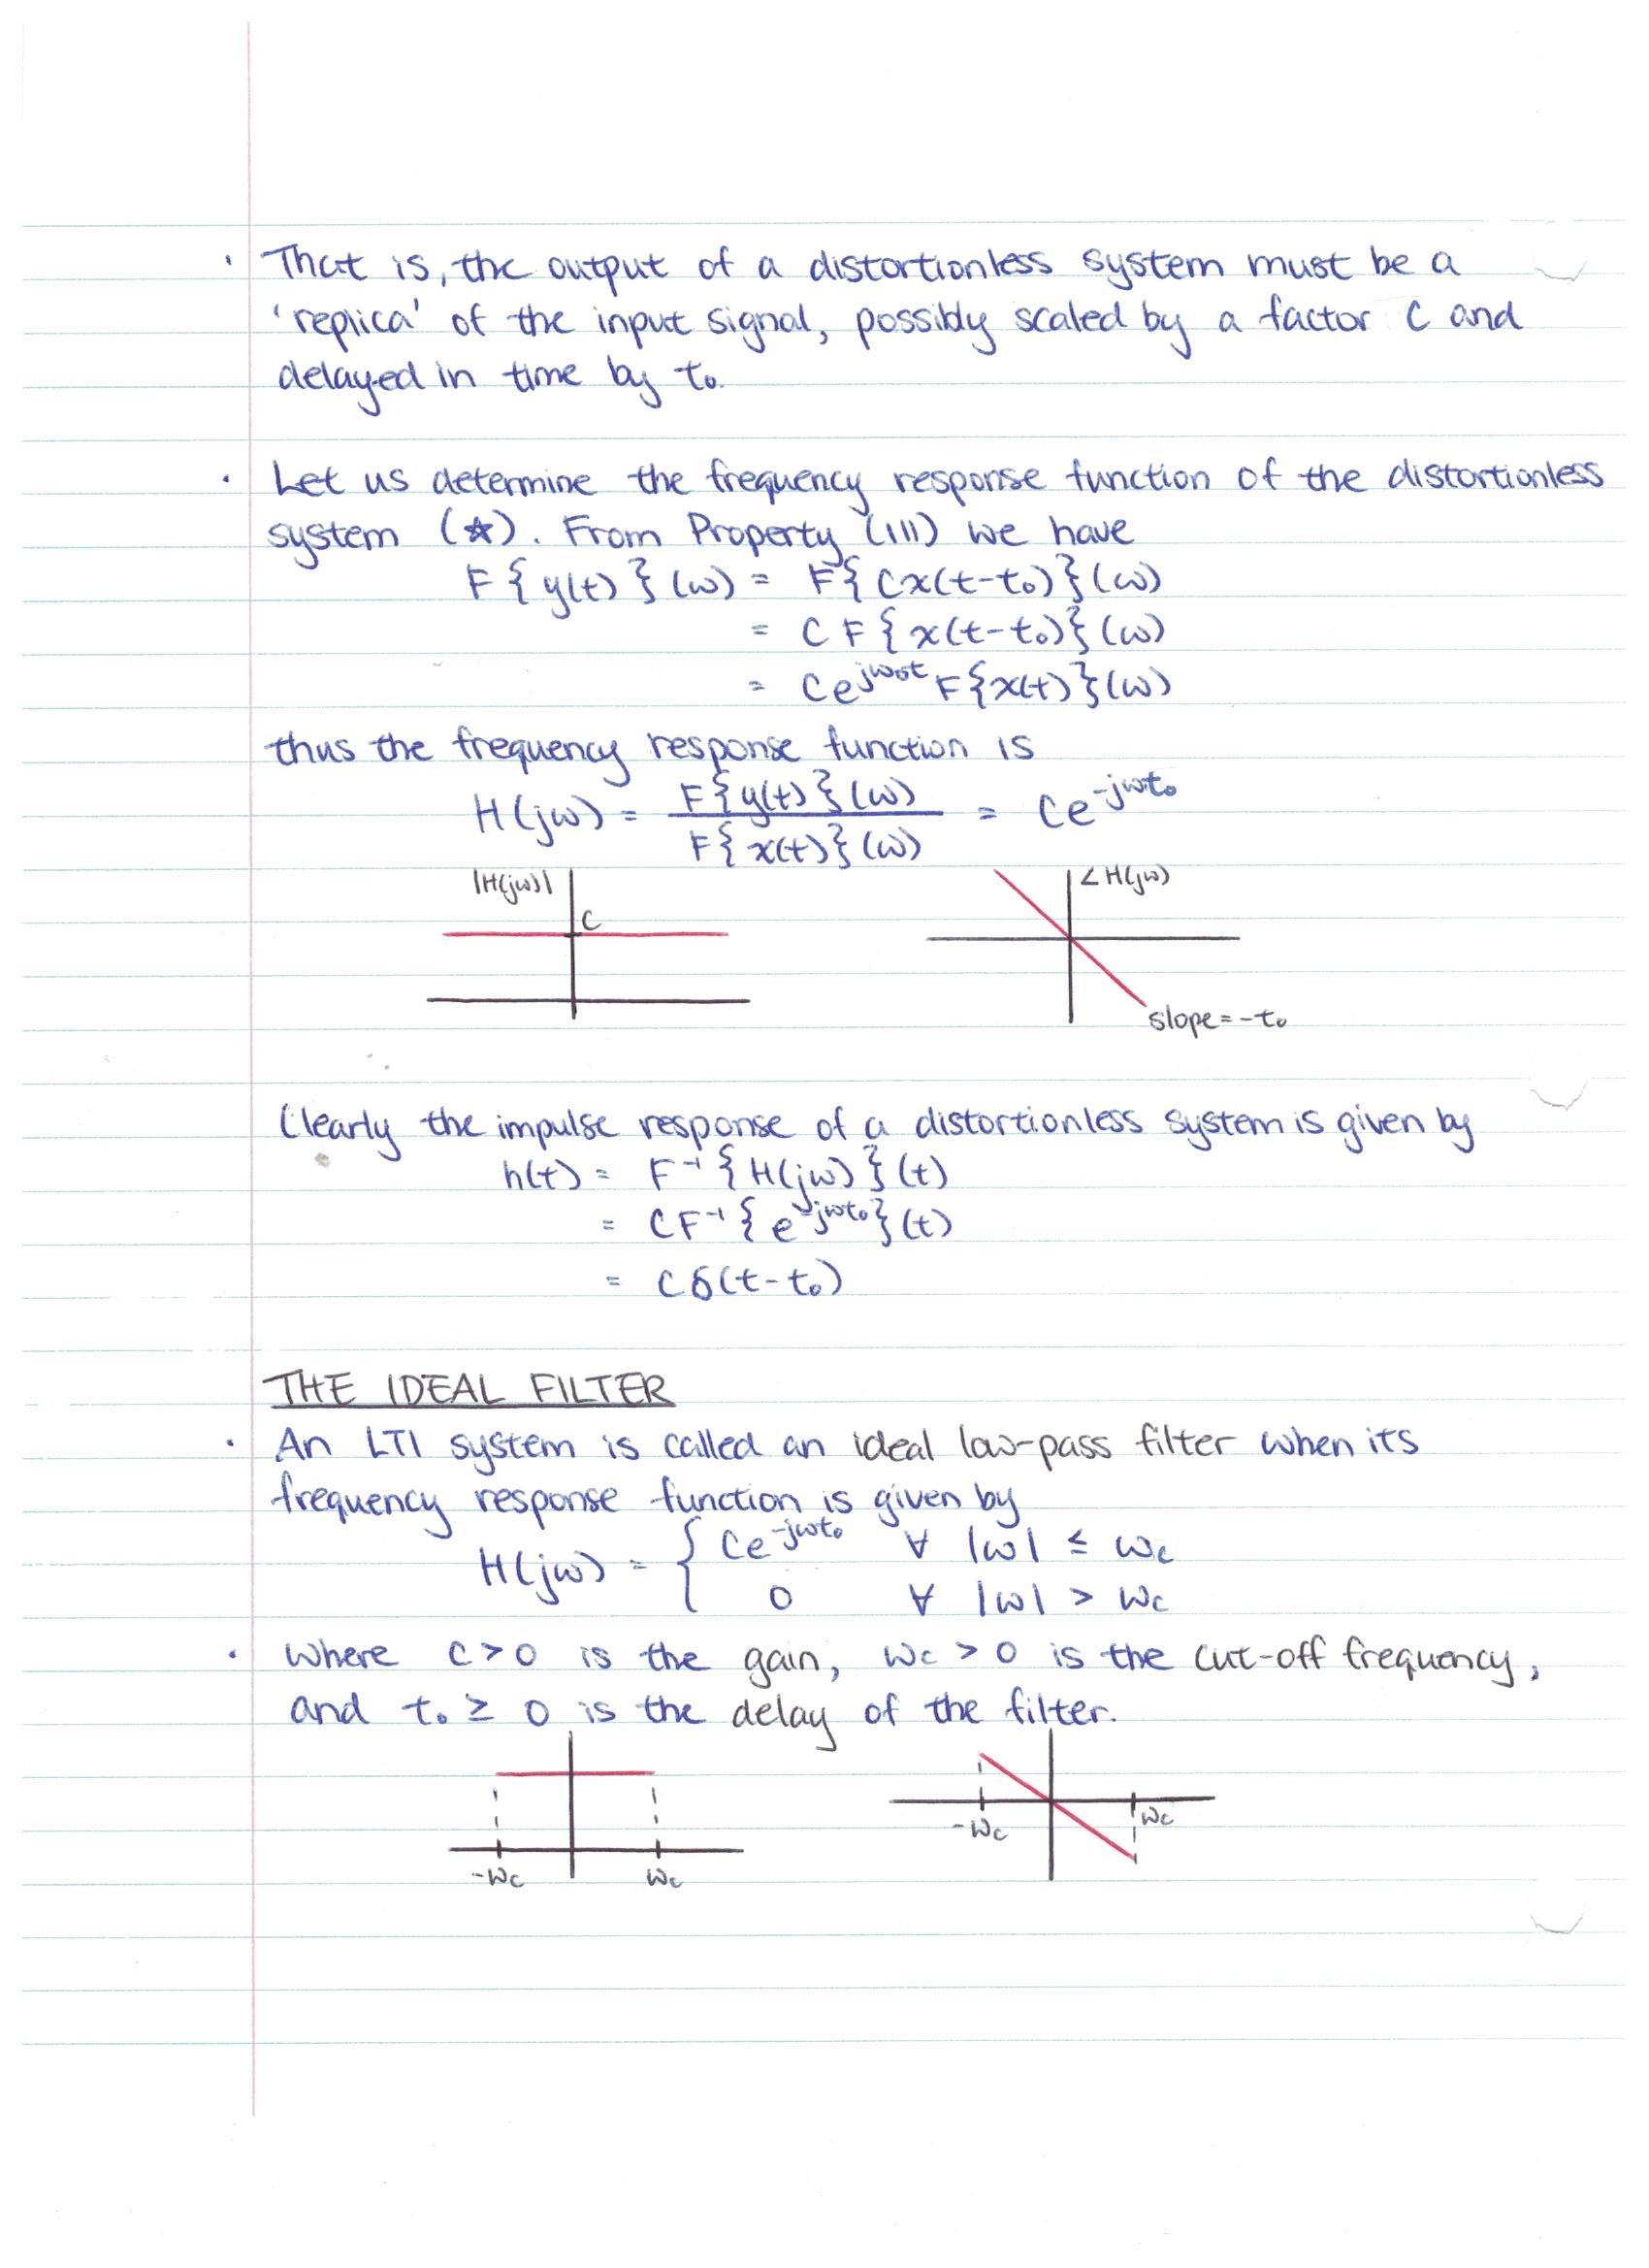 · That is, the output of a distortionless system must be a
'replica' of the input signal, possibly scaled by a factor C and
delayed in time by t₀.
· Let us determine the frequency response function of the distortionless
system (☆). From Property (iii) we have
F{y(t)}(ω) = F{Cx(t-t₀)}(ω)
= C F{x(t-t₀)}(ω)
= Ce^{jω₀t} F{x(t)}(ω)
thus the frequency response function is
H(jω) = F{y(t)}(ω) / F{x(t)}(ω) = Ce^{-jωt₀}
|H(jω)|
C
∠H(jω)
slope = -t₀
Clearly the impulse response of a distortionless system is given by
h(t) = F⁻¹{H(jω)}(t)
= CF⁻¹{e^{-jωt₀}}(t)
= Cδ(t-t₀)
THE IDEAL FILTER
· An LTI system is called an ideal low-pass filter when its
frequency response function is given by
H(jω) = { Ce^{-jωt₀} ∀ |ω| ≤ ωc
0 ∀ |ω| > ωc
· where C>0 is the gain, ωc > 0 is the cut-off frequency,
and t₀ ≥ 0 is the delay of the filter.
-ωc ωc
-ωc ωc